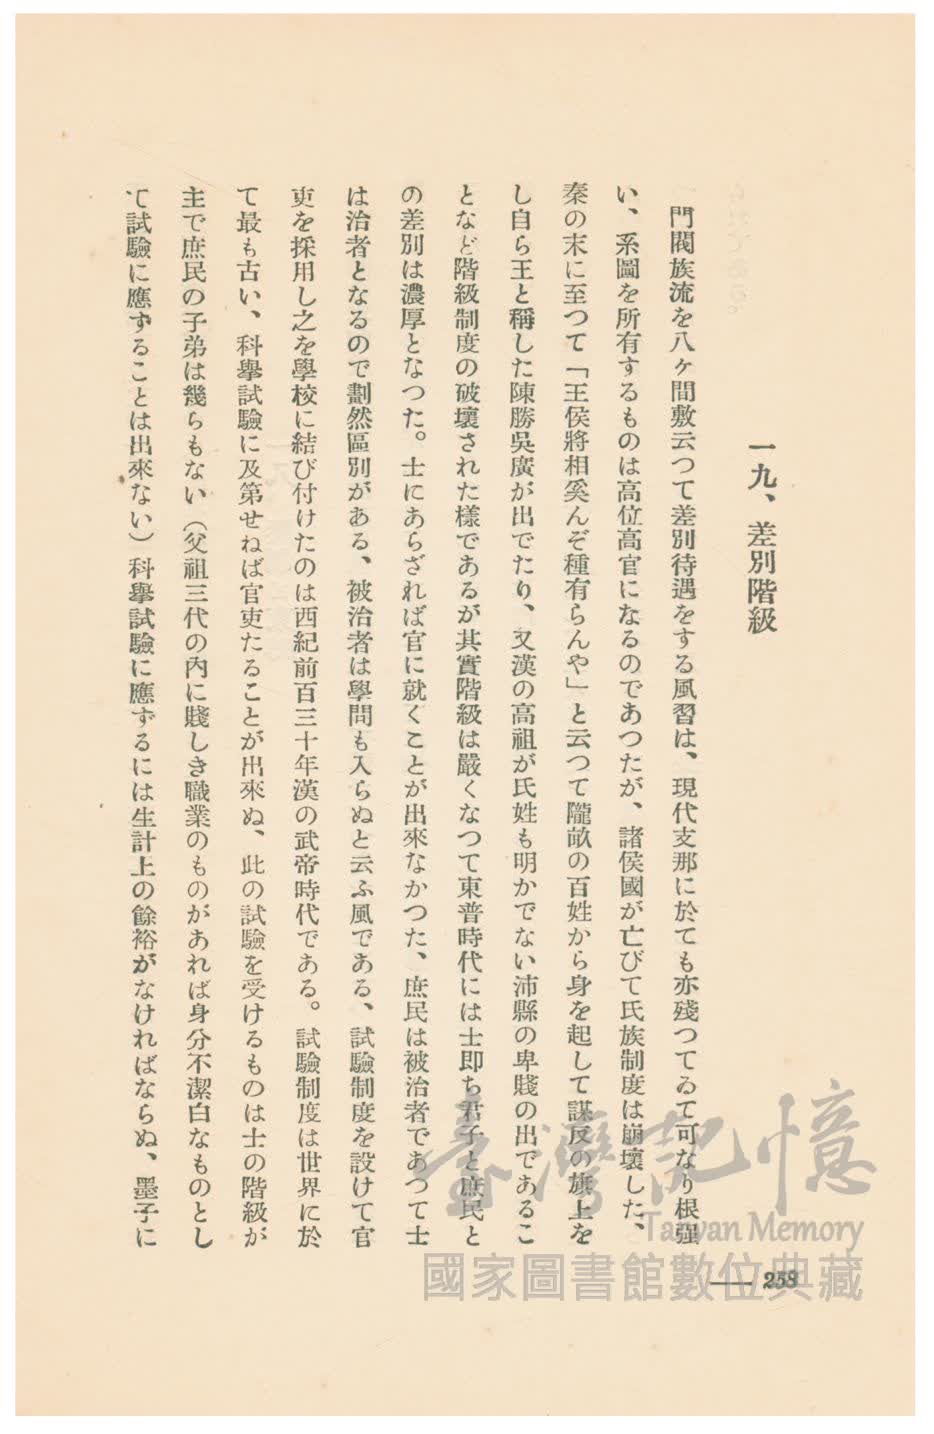 一九、差別階級
門閥族流を八ケ間敷云つて差別待遇をする風習は、現代支那に於ても亦殘つてゐて可なり根强
い、系圖を所有するものは高位高官になるのであつたが、諸侯國が亡びて氏族制度は崩壞した、
秦の末に至つて「王侯將相奚んぞ種有らんや」と云つて隴畝の百姓から身を起して謀反の旗上を
し自ら王と稱した陳勝吳廣が出でたり、又漢の高祖が氏姓も明かでない沛縣の卑賤の出であるこ
となど階級制度の破壞された樣であるが其實階級は嚴くなつて東晉時代には士即ち君子と庶民と
の差別は濃厚となつた。士にあらざれば官に就くことが出來なかつた、庶民は被治者であつて士
は治者となるので劃然區別がある、被治者は學問も入らぬと云ふ風である、試驗制度を設けて官
吏を採用し之を學校に結び付けたのは西紀前百三十年漢の武帝時代である。試驗制度は世界に於
て最も古い、科擧試驗に及第せねば官吏たることが出來ぬ、此の試驗を受けるものは士の階級が
主で庶民の子弟は幾らもない（父祖三代の內に賤しき職業のものがあれば身分不潔白なものとし
て試驗に應ずることは出來ない）科擧試驗に應ずるには生計上の餘裕がなければならぬ、墨子に
258
臺灣記憶
Taiwan Memory
國家圖書館數位典藏